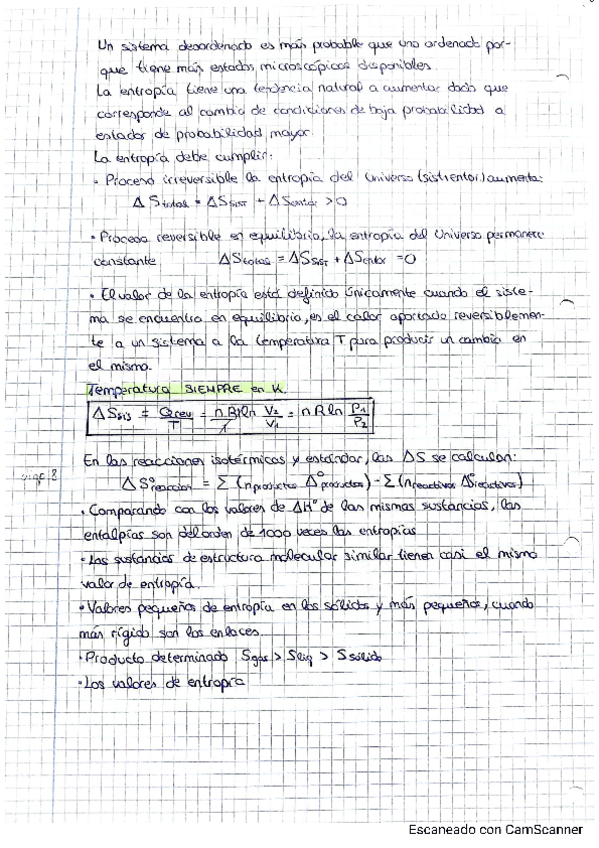 Un sistema desordenado es más probable que uno ordenado por-
que tiene más estados microscópicos disponibles.
La entropía tiene una tendencia natural a aumentar dado que
corresponde al cambio de condiciones de baja probabilidad a
estados de probabilidad mayor.
La entropía debe cumplir:
• Proceso irreversible la entropía del Universo (sist+entor.) aumenta:
Δ Stotal = ΔSsist + ΔSentor > 0
• Proceso reversible en equilibrio, la entropía del Universo permanece
constante ΔStotal = ΔSsist + ΔSentor = 0
• El valor de la entropía está definido únicamente cuando el siste-
ma se encuentra en equilibrio, es el calor aportado reversiblemen-
te a un sistema a la temperatura T para producir un cambio en
el mismo.
Temperatura SIEMPRE en K.
ΔSsis = Qrev/T = n R T ln V2/V1 / T = n R ln P1/P2
En las reacciones isotérmicas y estándar, las ΔS se calculan:
Δ S°reacción = Σ (nproductos Δ°productos) - Σ (nreactivos Δ°reactivos)
• Comparando con los valores de ΔH° de las mismas sustancias, las
entalpías son del orden de 1000 veces las entropías
• Las sustancias de estructura molecular similar tienen casi el mismo
valor de entropía.
• Valores pequeños de entropía en los sólidos y más pequeños, cuando
más rígido son los enlaces.
• Producto determinado Sgas > Sliq > Ssólido
• Los valores de entropía
Escaneado con CamScanner